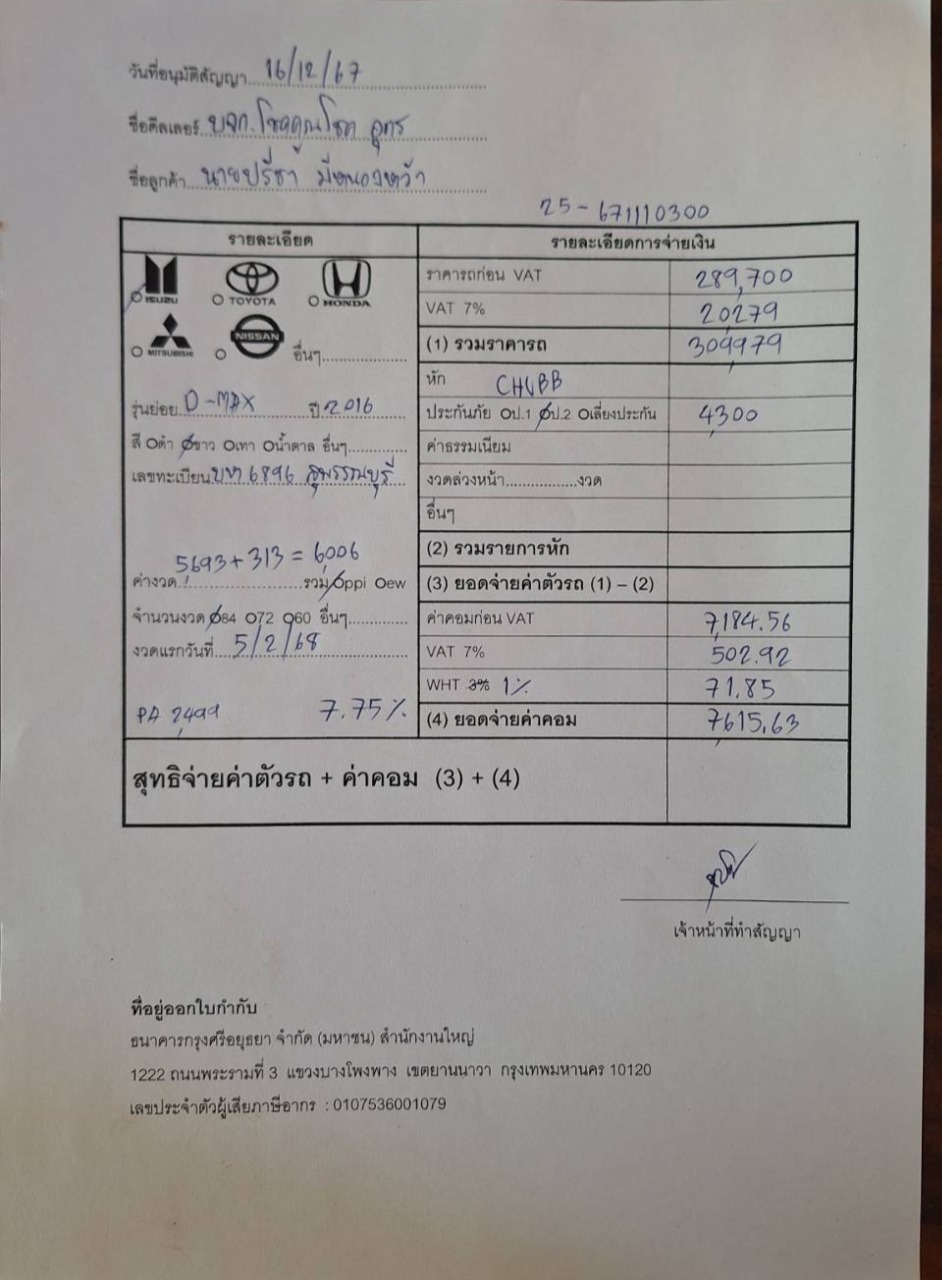 วันที่อนุมัติสัญญา 16/12/67
ชื่อดีลเลอร์ บจก.โชคคูณโชค
ชื่อลูกค้า นายปรีชา
25-671110300
รายละเอียด
ISUZU TOYOTA HONDA
MITSUBISHI NISSAN อื่นๆ
รุ่นย่อย D-MAX ปี 2016
สี ดำ ขาว เทา น้ำตาล อื่นๆ
เลขทะเบียน 6896 สุพรรณบุรี
5693+313 = 6,006
ค่างวด รวม ppi ew
จำนวนงวด 84 72 60 อื่นๆ
งวดแรกวันที่ 5/2/68
PA 2,499 7.75%
รายละเอียดการจ่ายเงิน
ราคารถก่อน VAT 289,700
VAT 7% 20,279
(1) รวมราคารถ 309,979
หัก CHUBB
ประกันภัย ป.1 ป.2 เลี่ยงประกัน 4,300
ค่าธรรมเนียม
งวดล่วงหน้า.................งวด
อื่นๆ
(2) รวมรายการหัก
(3) ยอดจ่ายค่าตัวรถ (1) – (2)
ค่าคอมก่อน VAT 7,184.56
VAT 7% 502.92
WHT 3% 1% 71.85
(4) ยอดจ่ายค่าคอม 7,615.63
สุทธิจ่ายค่าตัวรถ + ค่าคอม (3) + (4)
เจ้าหน้าที่ทำสัญญา
ที่อยู่ออกใบกำกับ
ธนาคารกรุงศรีอยุธยา จำกัด (มหาชน) สำนักงานใหญ่
1222 ถนนพระรามที่ 3 แขวงบางโพงพาง เขตยานนาวา กรุงเทพมหานคร 10120
เลขประจำตัวผู้เสียภาษีอากร : 0107536001079